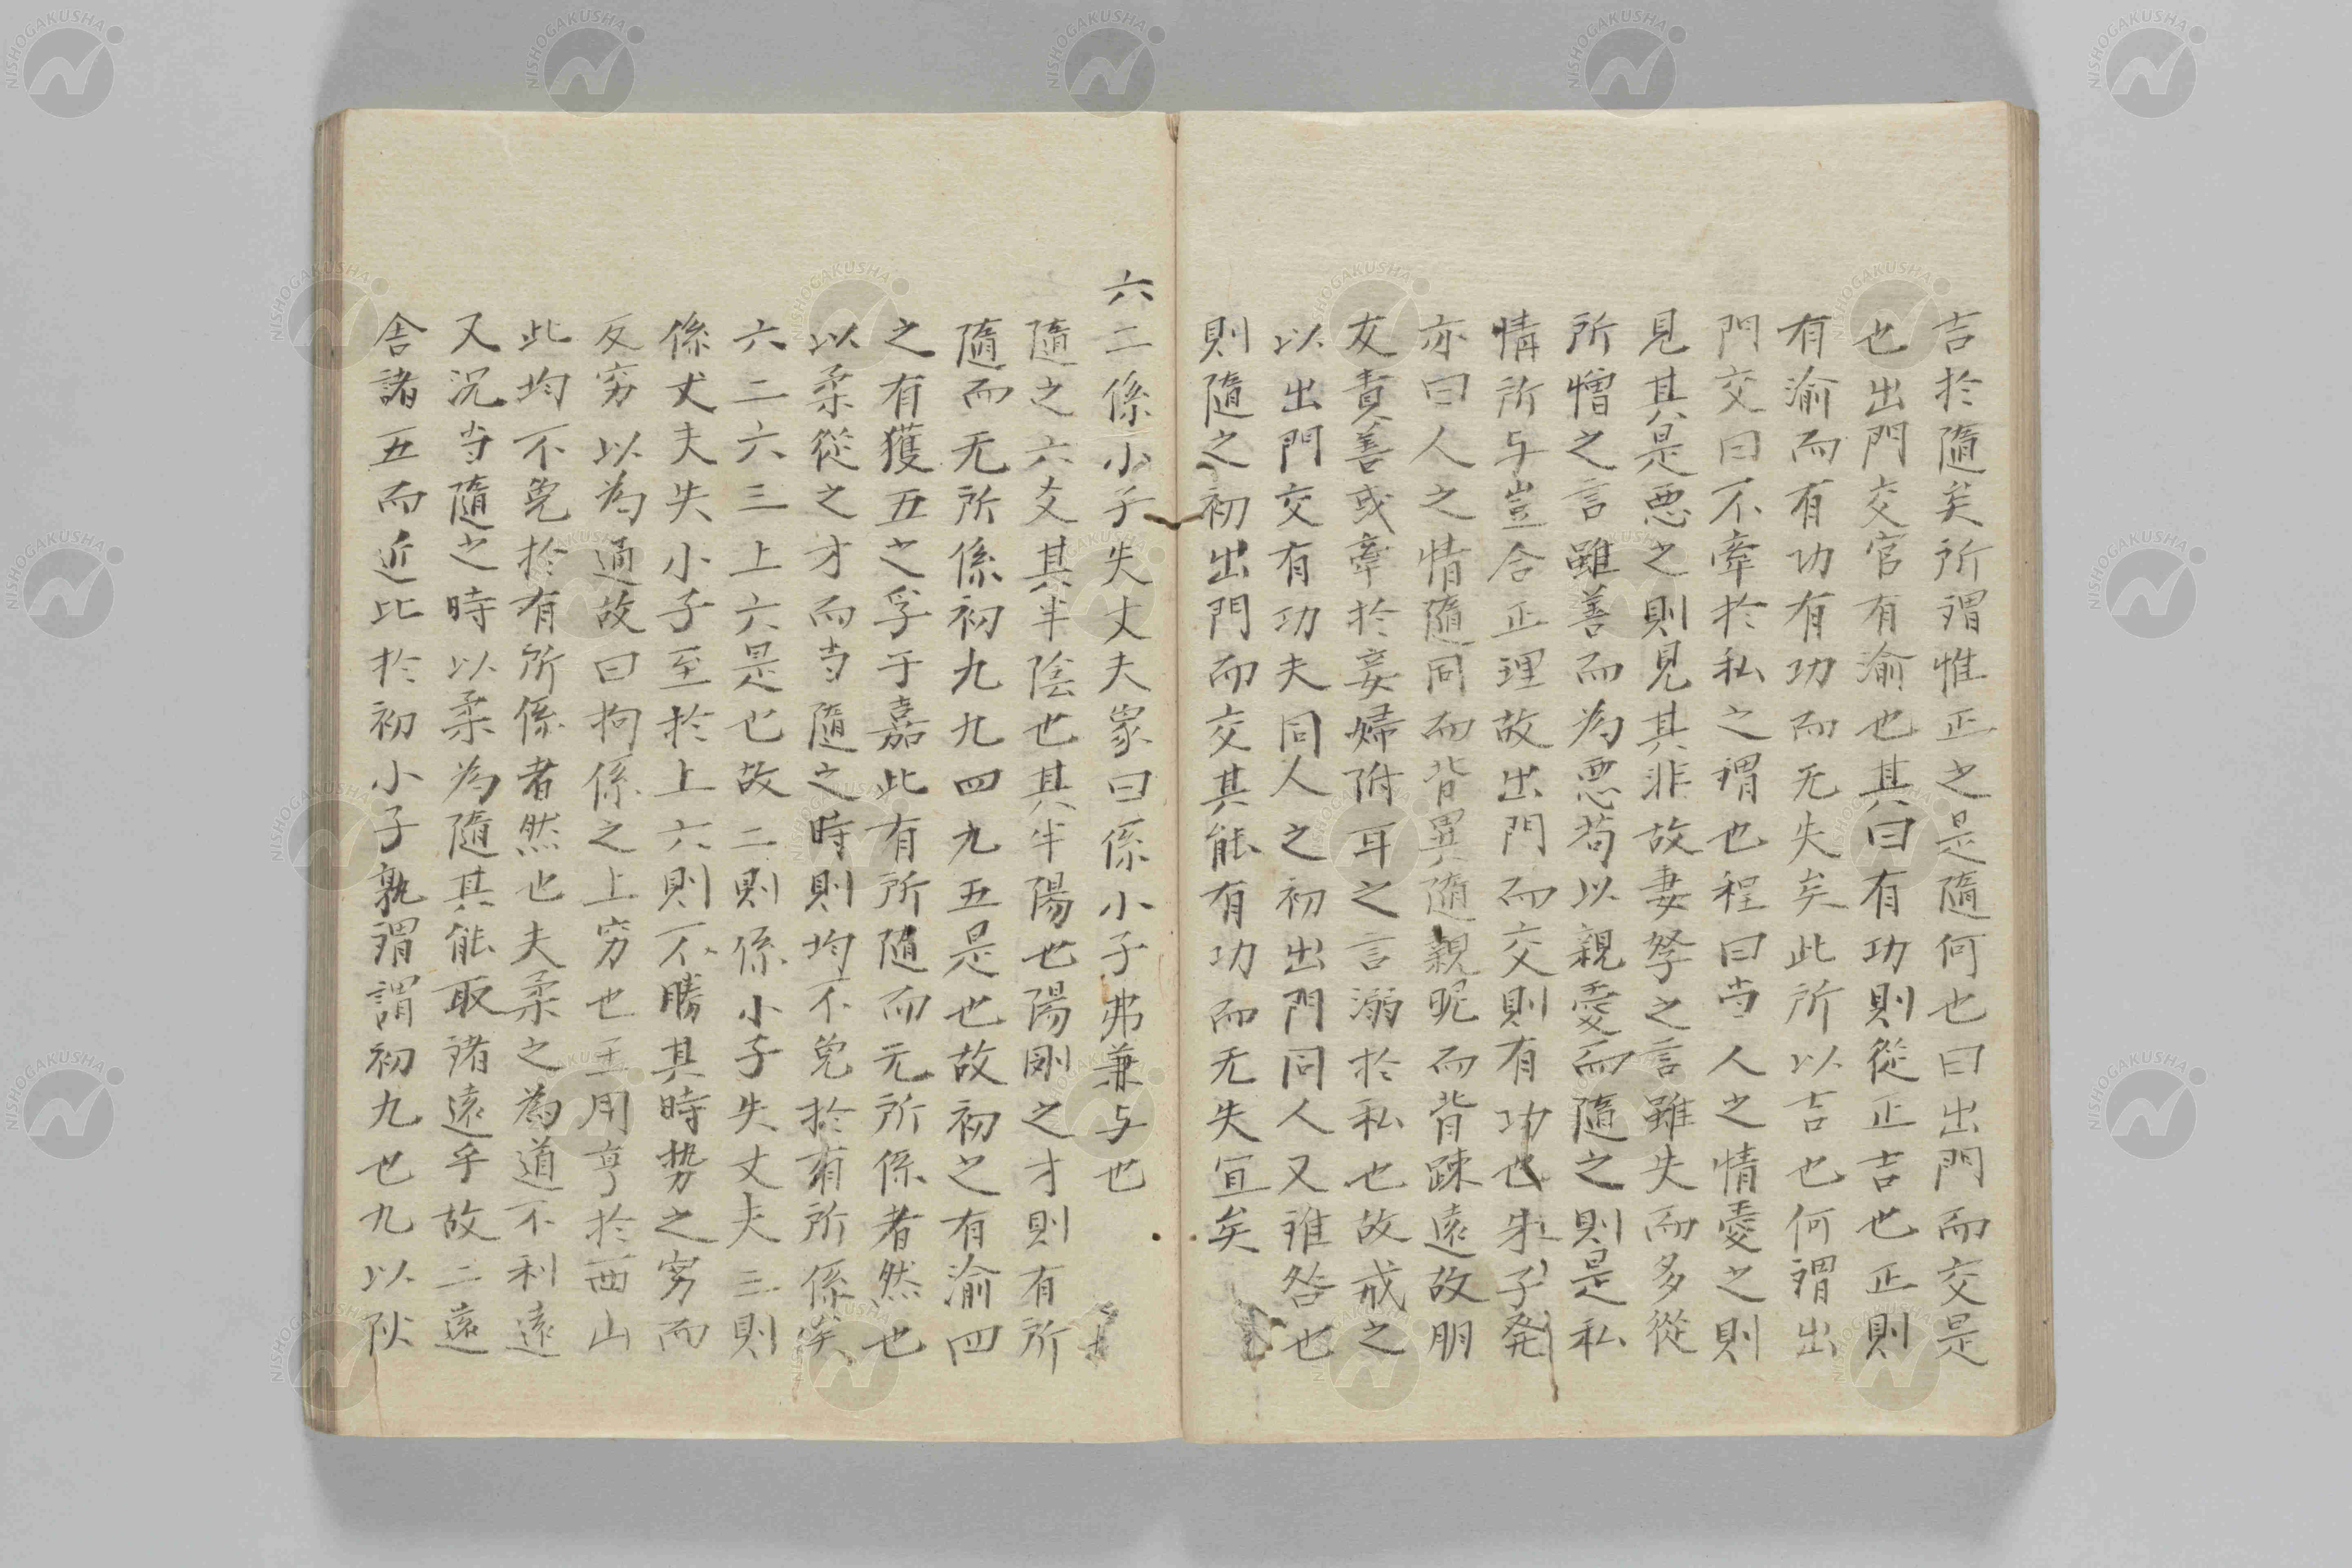 吉於隨矣所謂惟正之是隨何也曰出門而交是
也出門交官有渝也其曰有功則從正吉也正則
有渝而有功有功而无失矣此所以吉也何謂出
門交曰不牽於私之謂也程曰当人之情愛之則
見其是悪之則見其非故妻孥之言雖失而多從
所憎之言雖善而為悪苟以親愛而隨之則是私
情所与豈合正理故出門而交則有功也朱子発
亦曰人之情隨同而背異隨親昵而背踈遠故朋
友責善或牽於妾婦附耳之言溺於私也故戒之
以出門交有功夫同人之初出門同人又誰咎也
則隨之初出門而交其能有功而无失宜矣
六二係小子失丈夫象曰係小子弗兼与也
隨之六爻其半陰也其半陽也陽剛之才則有所
隨而无所係初九九四九五是也故初之有渝四
之有獲五之孚于嘉此有所隨而无所係者然也
以柔從之才而当隨之時則均不免於有所係矣
六二六三上六是也故二則係小子失丈夫三則
係丈夫失小子至於上六則不勝其時势之窮而
反穷以為通故曰拘係之上穷也王用亨於西山
此均不免於有所係者然也夫柔之為道不利遠
又况当隨之時以柔為隨其能取諸遠乎故二遠
舎諸五而近比於初小子孰謂謂初九也九以阦
NISHOGAKUSHA